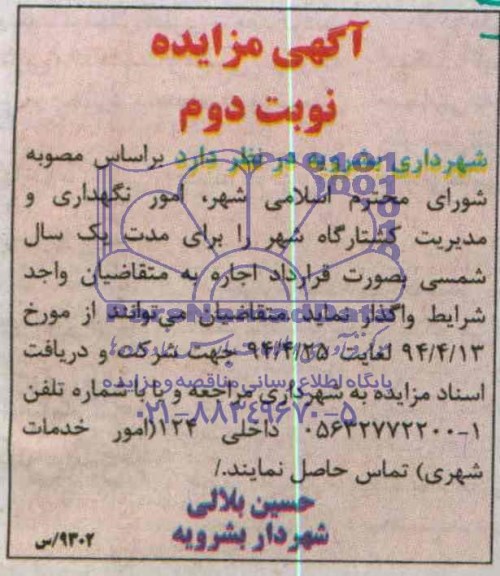 آگهی مزایده
نوبت دوم
شهرداری بشرویه در نظر دارد براساس مصوبه
شورای محترم اسلامی شهر، امور نگهداری و
مدیریت کشتارگاه شهر را برای مدت یک سال
شمسی بصورت قرارداد اجاره به متقاضیان واجد
شرایط واگذار نماید. متقاضیان می‌توانند از مورخ
۹۴/۴/۱۳ لغایت ۹۴/۴/۲۵ جهت شرکت و دریافت
اسناد مزایده به شهرداری مراجعه و یا با شماره تلفن
۱-۰۵۶۳۲۷۷۲۲۰۰ داخلی ۱۲۴(امور خدمات
شهری) تماس حاصل نمایند./
حسین بلالی
شهردار بشرویه
۹۳۰۲/س
ParsNamadData
پایگاه اطلاع رسانی مناقصه و مزایده
۰۲۱-۸۸۳۴۹۶۷۰-۵